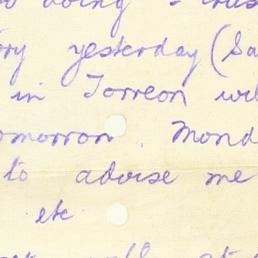 doing I trus
ry yesterday (Sa
in Torreon wi
omorrow. Mond
to advise me
etc